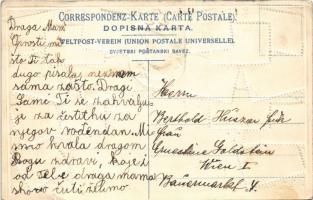 CORRESPONDENZ-KARTE (CARTE POSTALE)
DOPISNA KARTA.
WELTPOST-VEREIN (UNION POSTALE UNIVERSELLE)
SVJETSKI POŠTANSKI SAVEZ.
Draga Mama
Oprosti mi
što ti tak
dugo pisala, neznam
sama zašto. Dragi
Samu Ti se zahvalju
je za čestitku za
njegov rođendan. Mi
smo hvala dragom
Bogu zdravi, koje i
od Tebe draga mama
skoro čuti želimo
Herrn
Berthold
für
Frau
Ernestine Goldstein
Wien I
Bauernmarkt